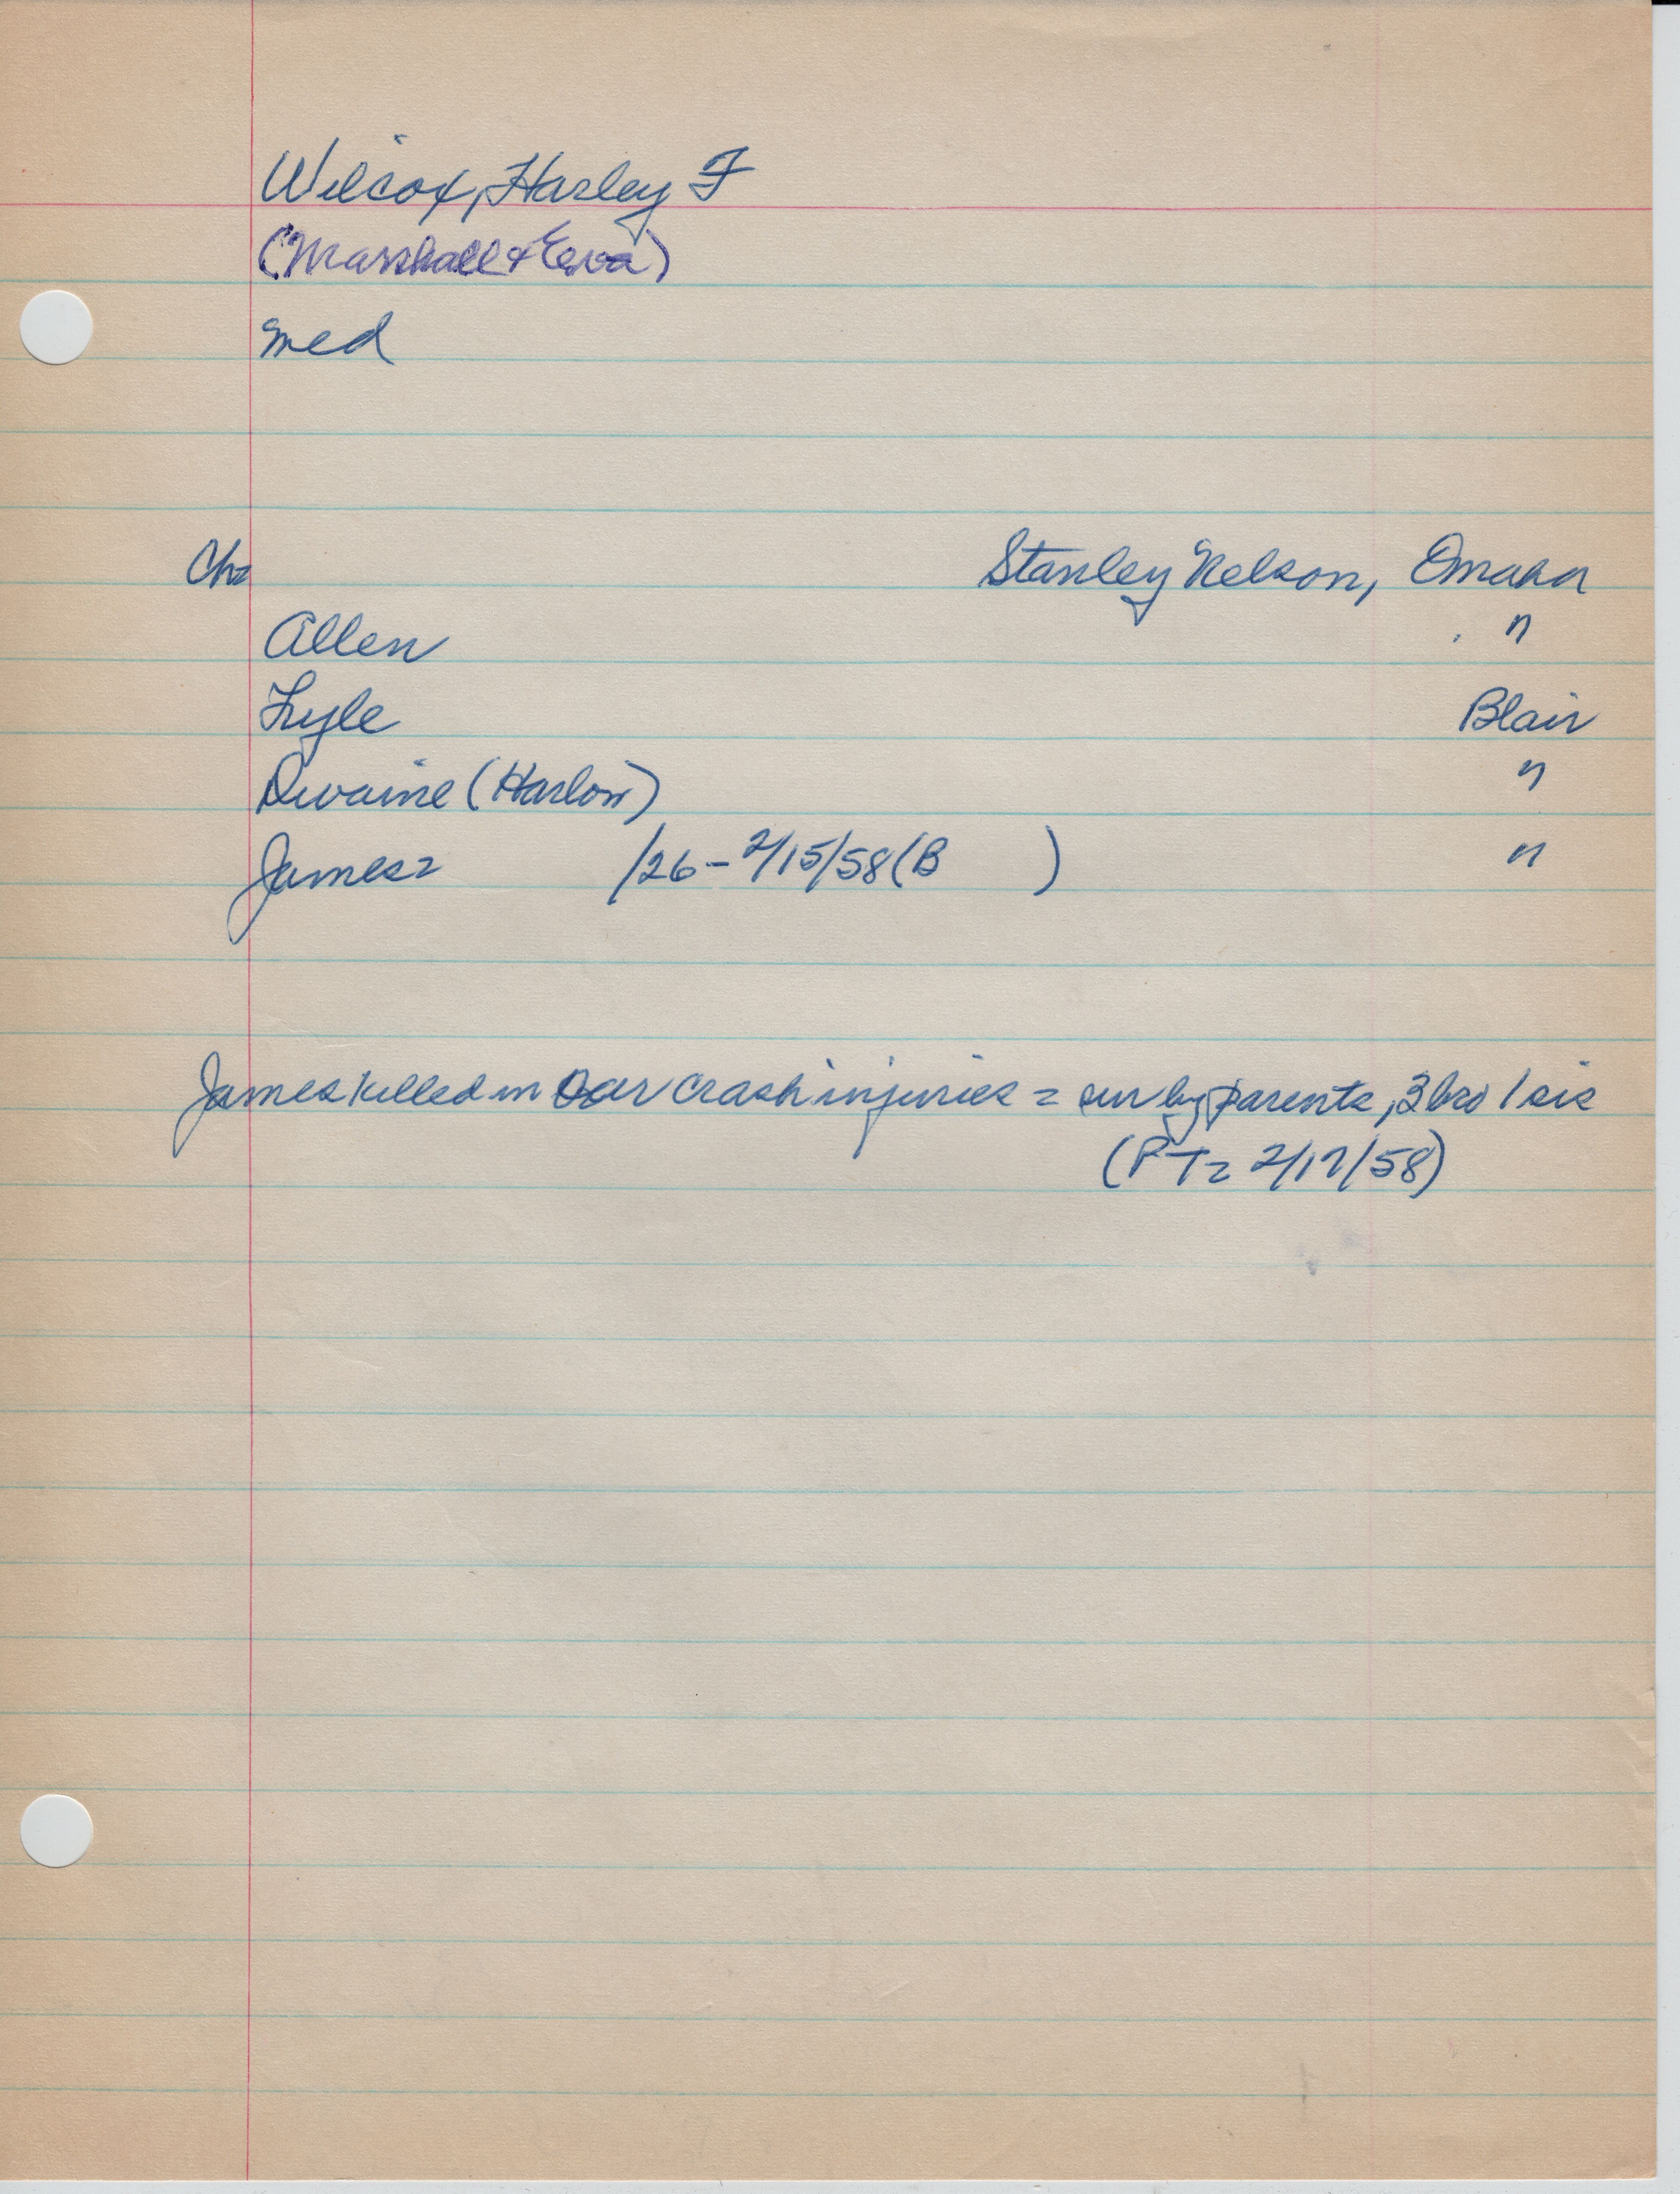 Wilcox, Harley F
(Marshall & Eva)
med
Ch= Stanley Nelson, Omaha
Allen "
Lyle Blair
Dwaine (Harlow) "
James= /26 - 2/15/58 (B ) "
James killed in car crash injuries = sur by parents, 3 bro 1 sis
(PT= 2/17/58)